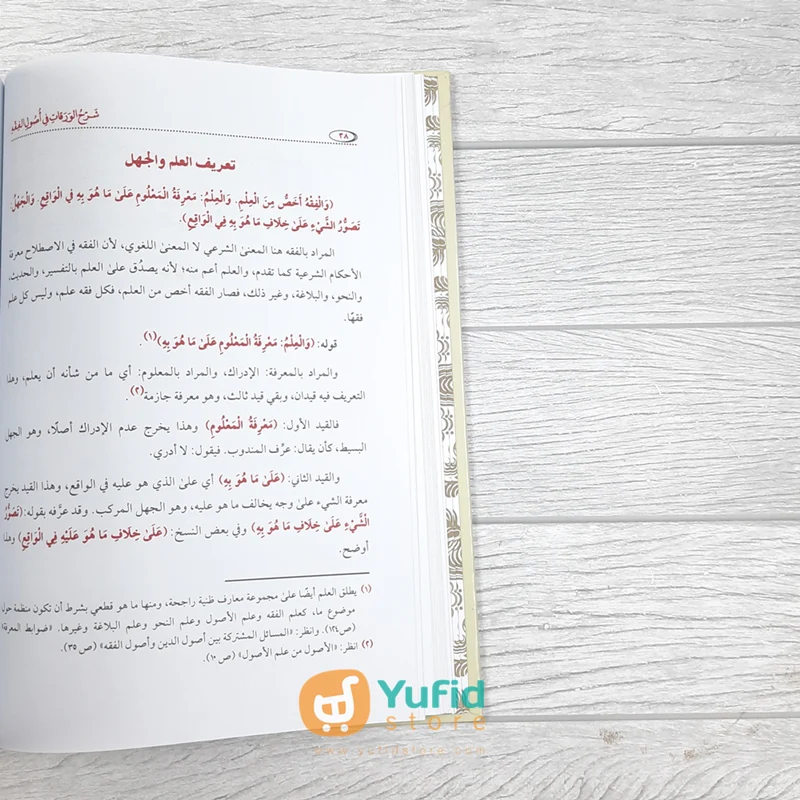 شَرْحُ الوَرَقَاتِ فِي أُصُولِ الفِقْهِ
٣٨
تعريف العلم والجهل
(وَالْفِقْهُ أَخَصُّ مِنَ الْعِلْمِ. وَالْعِلْمُ: مَعْرِفَةُ الْمَعْلُومِ عَلَىٰ مَا هُوَ بِهِ فِي الْوَاقِعِ. وَالْجَهْلُ:
تَصَوُّرُ الشَّيْءِ عَلَىٰ خِلَافِ مَا هُوَ بِهِ فِي الْوَاقِعِ).
المراد بالفقه هنا المعنىٰ الشرعي لا المعنىٰ اللغوي، لأن الفقه في الاصطلاح معرفة
الأحكام الشرعية كما تقدم، والعلم أعم منه؛ لأنه يصدُق علىٰ العلم بالتفسير، والحديث،
والنحو، والبلاغة، وغير ذلك، فصار الفقه أخص من العلم، فكل فقه علم، وليس كل علم
فقهًا.
قوله: (وَالْعِلْمُ: مَعْرِفَةُ الْمَعْلُومِ عَلَىٰ مَا هُوَ بِهِ)(١).
والمراد بالمعرفة: الإدراك، والمراد بالمعلوم: أي ما من شأنه أن يعلم، وهذا
التعريف فيه قيدان، وبقي قيد ثالث، وهو معرفة جازمة(٢).
فالقيد الأول: (مَعْرِفَةُ الْمَعْلُومِ) وهذا يخرج عدم الإدراك أصلًا، وهو الجهل
البسيط، كأن يقال: عرِّف المندوب. فيقول: لا أدري.
والقيد الثاني: (عَلَىٰ مَا هُوَ بِهِ) أي علىٰ الذي هو عليه في الواقع، وهذا القيد يخرج
معرفة الشيء علىٰ وجه يخالف ما هو عليه، وهو الجهل المركب. وقد عرَّفه بقوله: (تَصَوُّرُ
الْشَّيْءِ عَلَىٰ خِلَافِ مَا هُوَ بِهِ) وفي بعض النسخ: (عَلَىٰ خِلَافِ مَا هُوَ عَلَيْهِ فِي الْوَاقِعِ) وهذا
أوضح.
(١) يطلق العلم أيضًا علىٰ مجموعة معارف ظنية راجحة، ومنها ما هو قطعي بشرط أن تكون منظمة حول
موضوع ما، كعلم الفقه وعلم الأصول وعلم النحو وعلم البلاغة وغيرها. «ضوابط المعرفة»
(ص١٢٤). وانظر: «المسائل المشتركة بين أصول الدين وأصول الفقه» (ص ٣٥).
(٢) انظر: «الأصول من علم الأصول» (ص ١٠).
Yufid
store
www.yufidstore.com